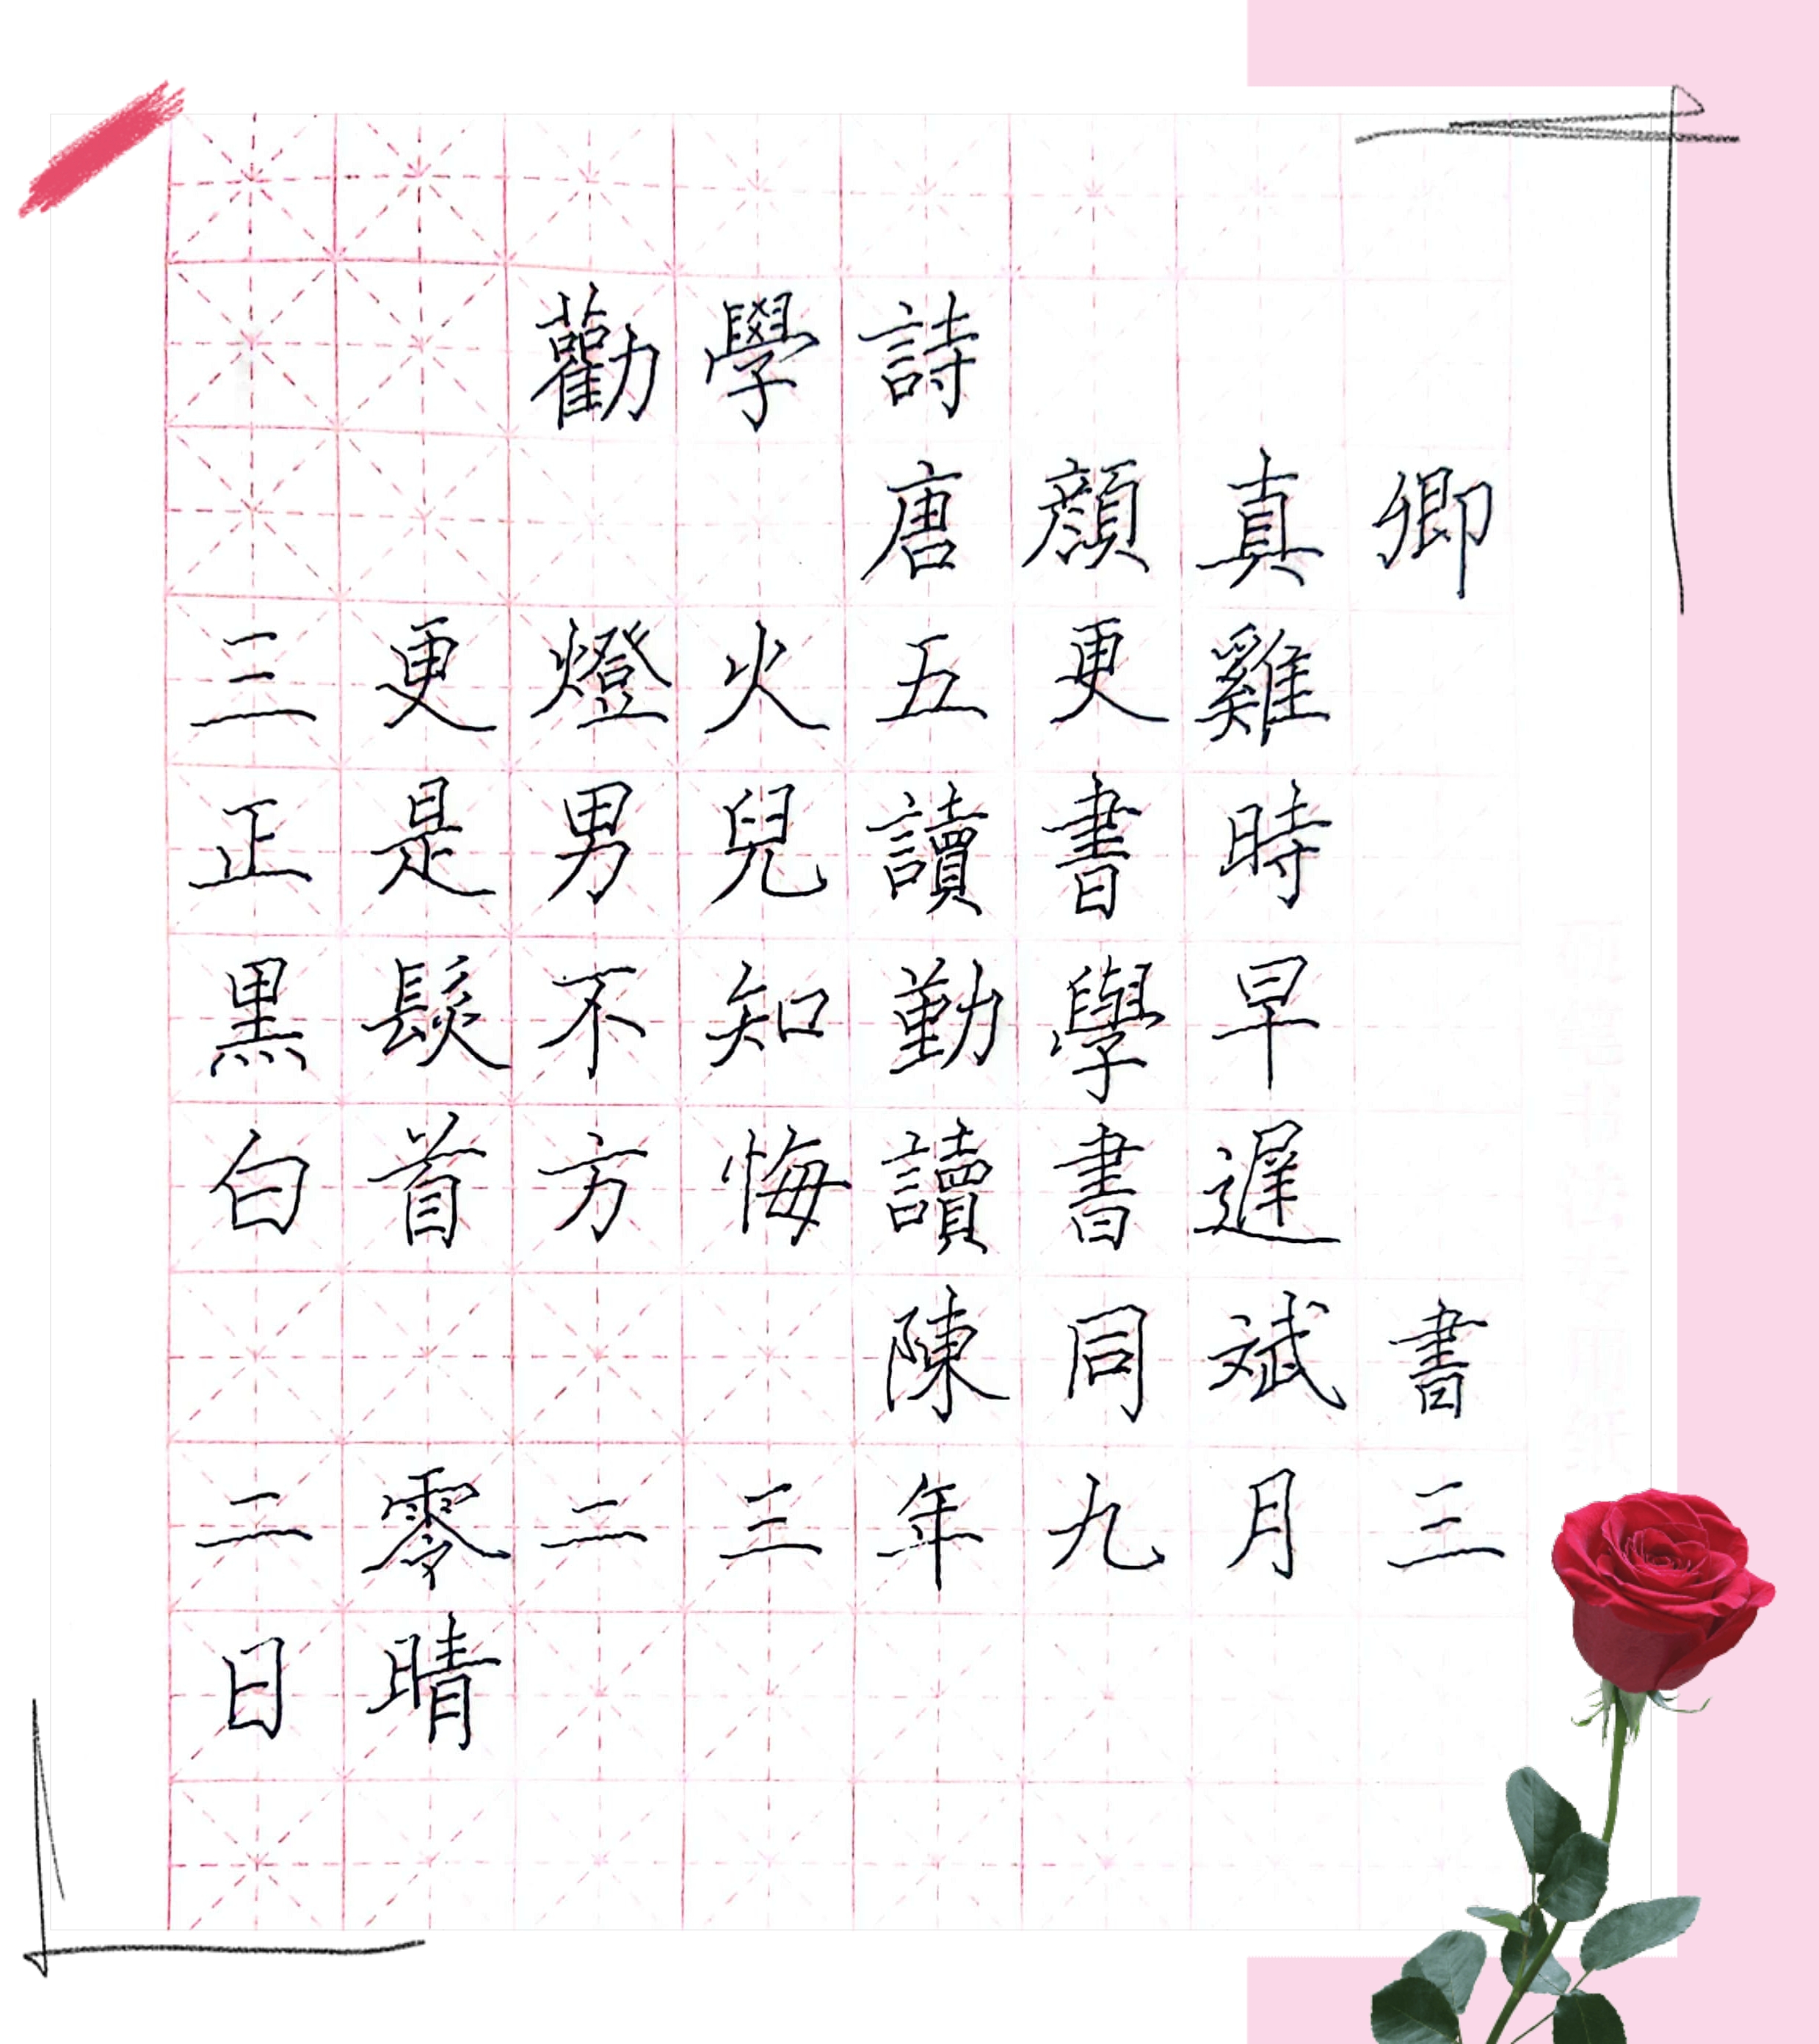 勸學詩
唐顔真卿
三更燈火五更雞
正是男兒讀書時
黑髮不知勤學早
白首方悔讀書遲
陳同斌書
二零二三年九月三
日晴